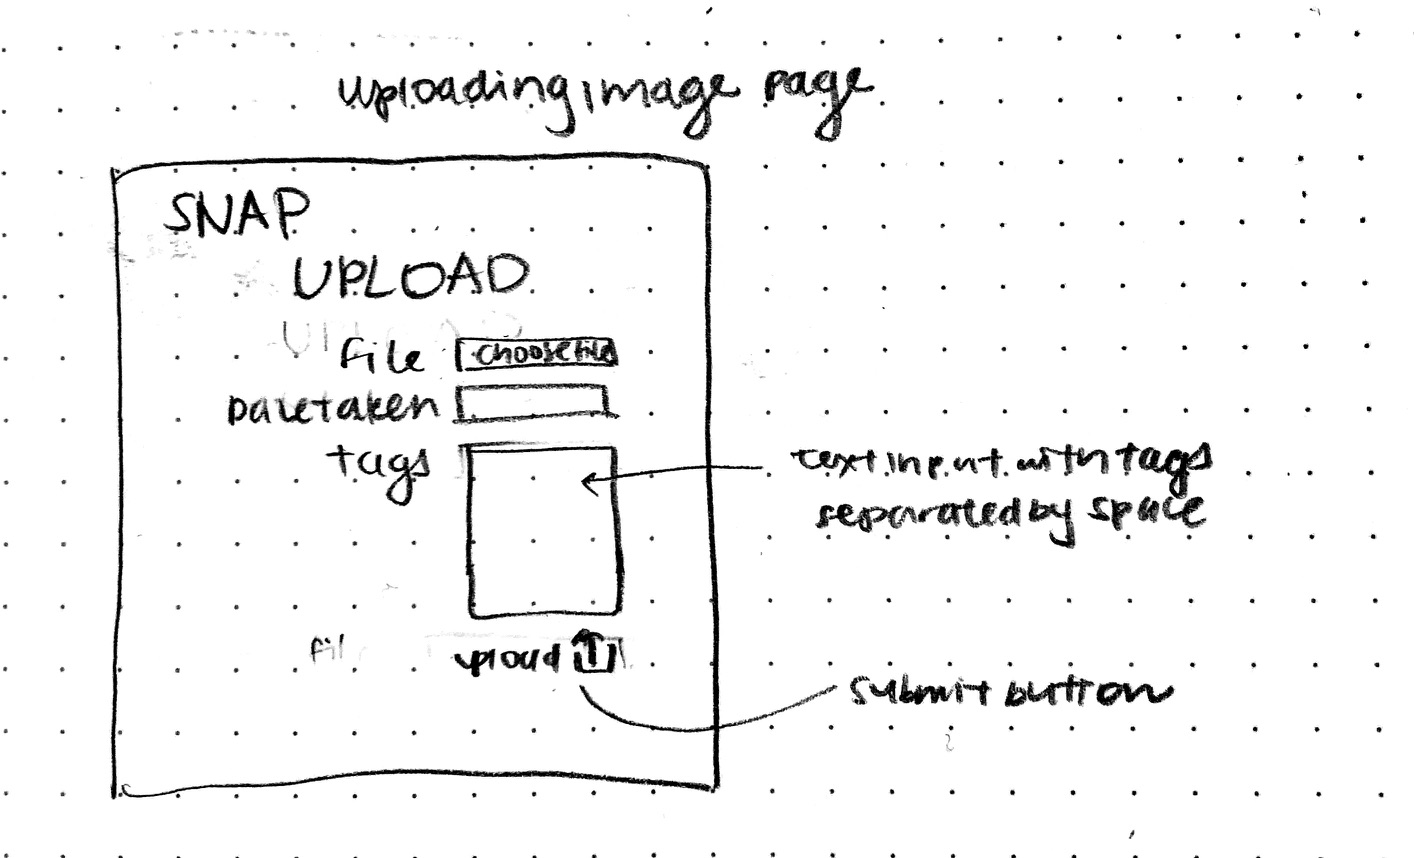 uploading image page
SNAP
UPLOAD
file choose file
Date taken
tags
text input with tags
separated by space
fil
upload
submit button